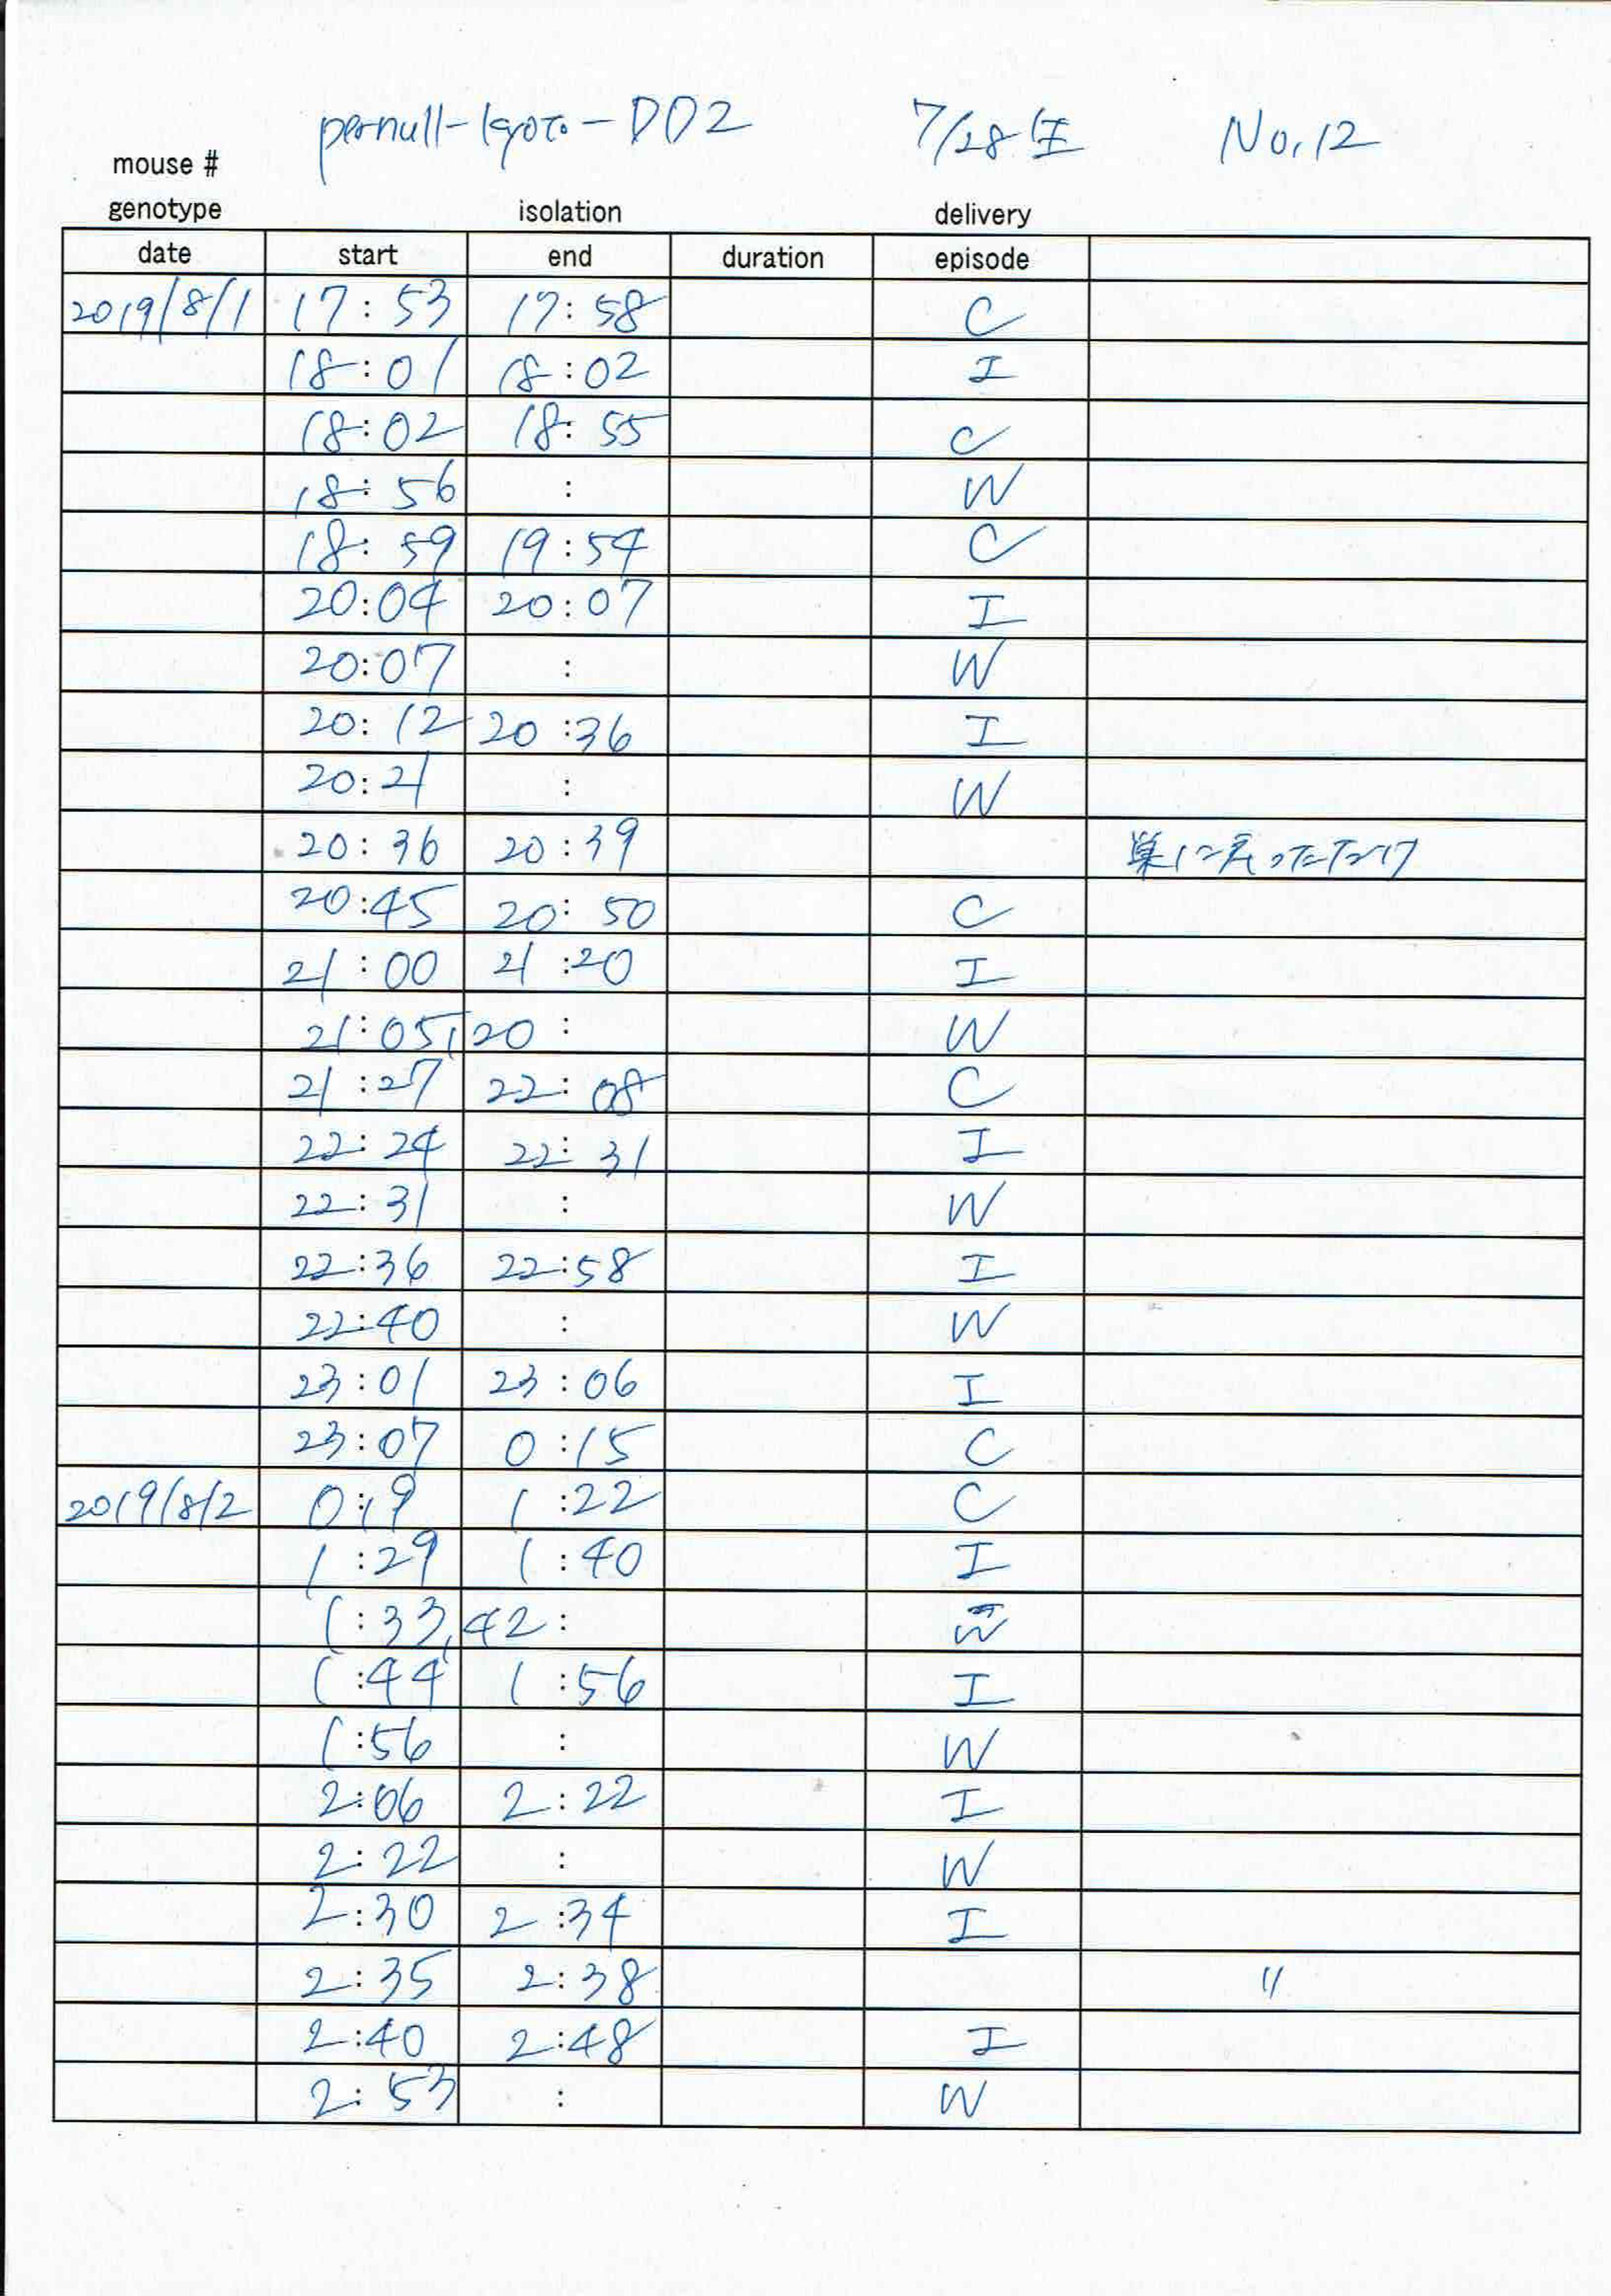 pernull-kyoto-D02 7/28生 No.12
mouse #
genotype isolation delivery
date start end duration episode
2019/8/1 17:53 17:58 C
18:01 18:02 I
18:02 18:55 C
18:56 : W
18:59 19:54 C
20:04 20:07 I
20:07 : W
20:12 20:36 I
20:21 : W
20:36 20:39 巣に戻っただけ
20:45 20:50 C
21:00 21:20 I
21:05,20 : W
21:27 22:08 C
22:24 22:31 I
22:31 : W
22:36 22:58 I
22:40 : W
23:01 23:06 I
23:07 0:15 C
2019/8/2 0:19 1:22 C
1:29 1:40 I
1:33,42 : W
1:44 1:56 I
1:56 : W
2:06 2:22 I
2:22 : W
2:30 2:34 I
2:35 2:38 〃
2:40 2:48 I
2:53 : W